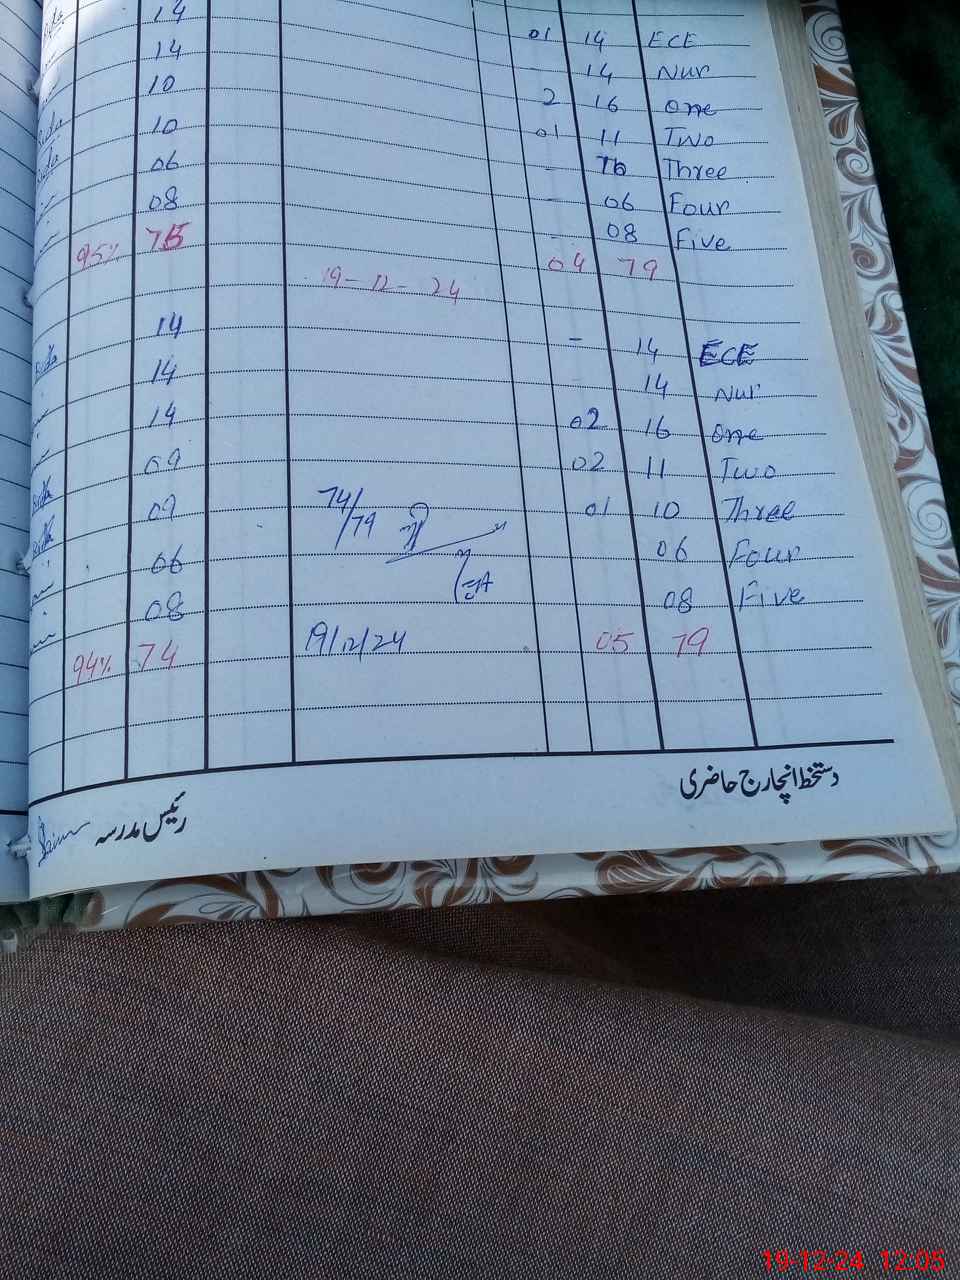 14 01 14 ECE
14 14 Nur
10 2 16 One
10 01 11 Two
06 - 10 Three
08 - 06 Four
95% 75 - 08 Five
04 79
19-12-24
14 - 14 ECE
14 14 Nur
14 02 16 One
09 02 11 Two
09 74/79 01 10 Three
06 06 Four
08 08 Five
94% 74 19/12/24 05 79
دستخط انچارج حاضری
رئیس مدرسہ
19-12-24 12:05